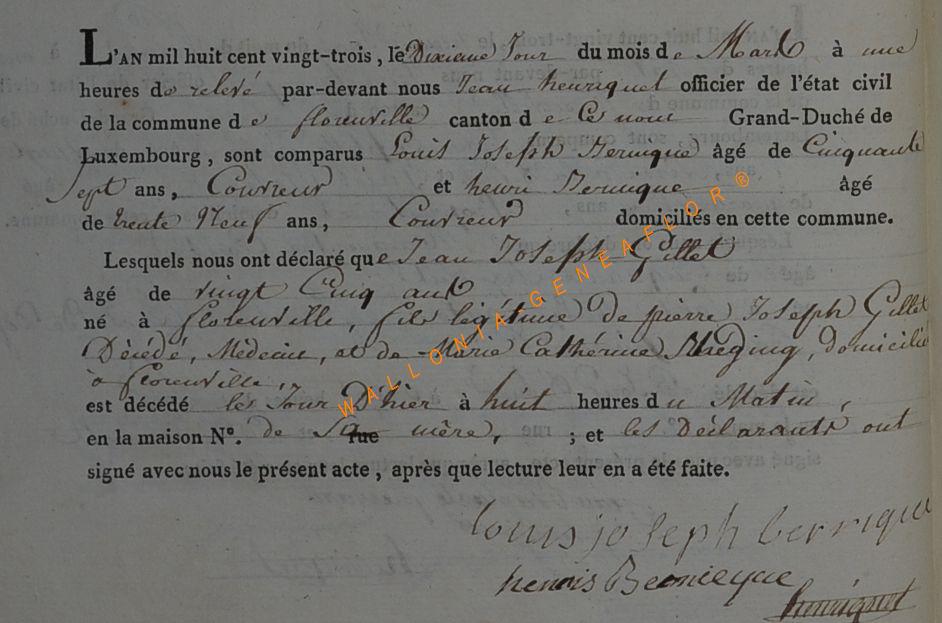 L'AN mil huit cent vingt-trois, le Dixieme Jour du mois de Mars à une
heures de relevé par-devant nous Jean henriquet officier de l'état civil
de la commune de florenville canton de Grand-Duché de
Luxembourg, sont comparus Louis Joseph âgé de Cinquante
Sept ans, Couvreur et henri âgé
de trente Neuf ans, Couvreur domiciliés en cette commune.
Lesquels nous ont déclaré que Jean Joseph Gillet
âgé de vingt Cinq ans
né à florenville, fils légitime de pierre Joseph Gillet
Décédé, Médecin, et de Marie Cathérine domicilié
à florenville,
est décédé les Jour D'hier à huit heures du Matin,
en la maison N°. de Sa rue mère, ; et les Déclarants ont
signé avec nous le présent acte, après que lecture leur en a été faite.
louis joseph
henris
henriquet
WALLONIAGENEAFLOR®